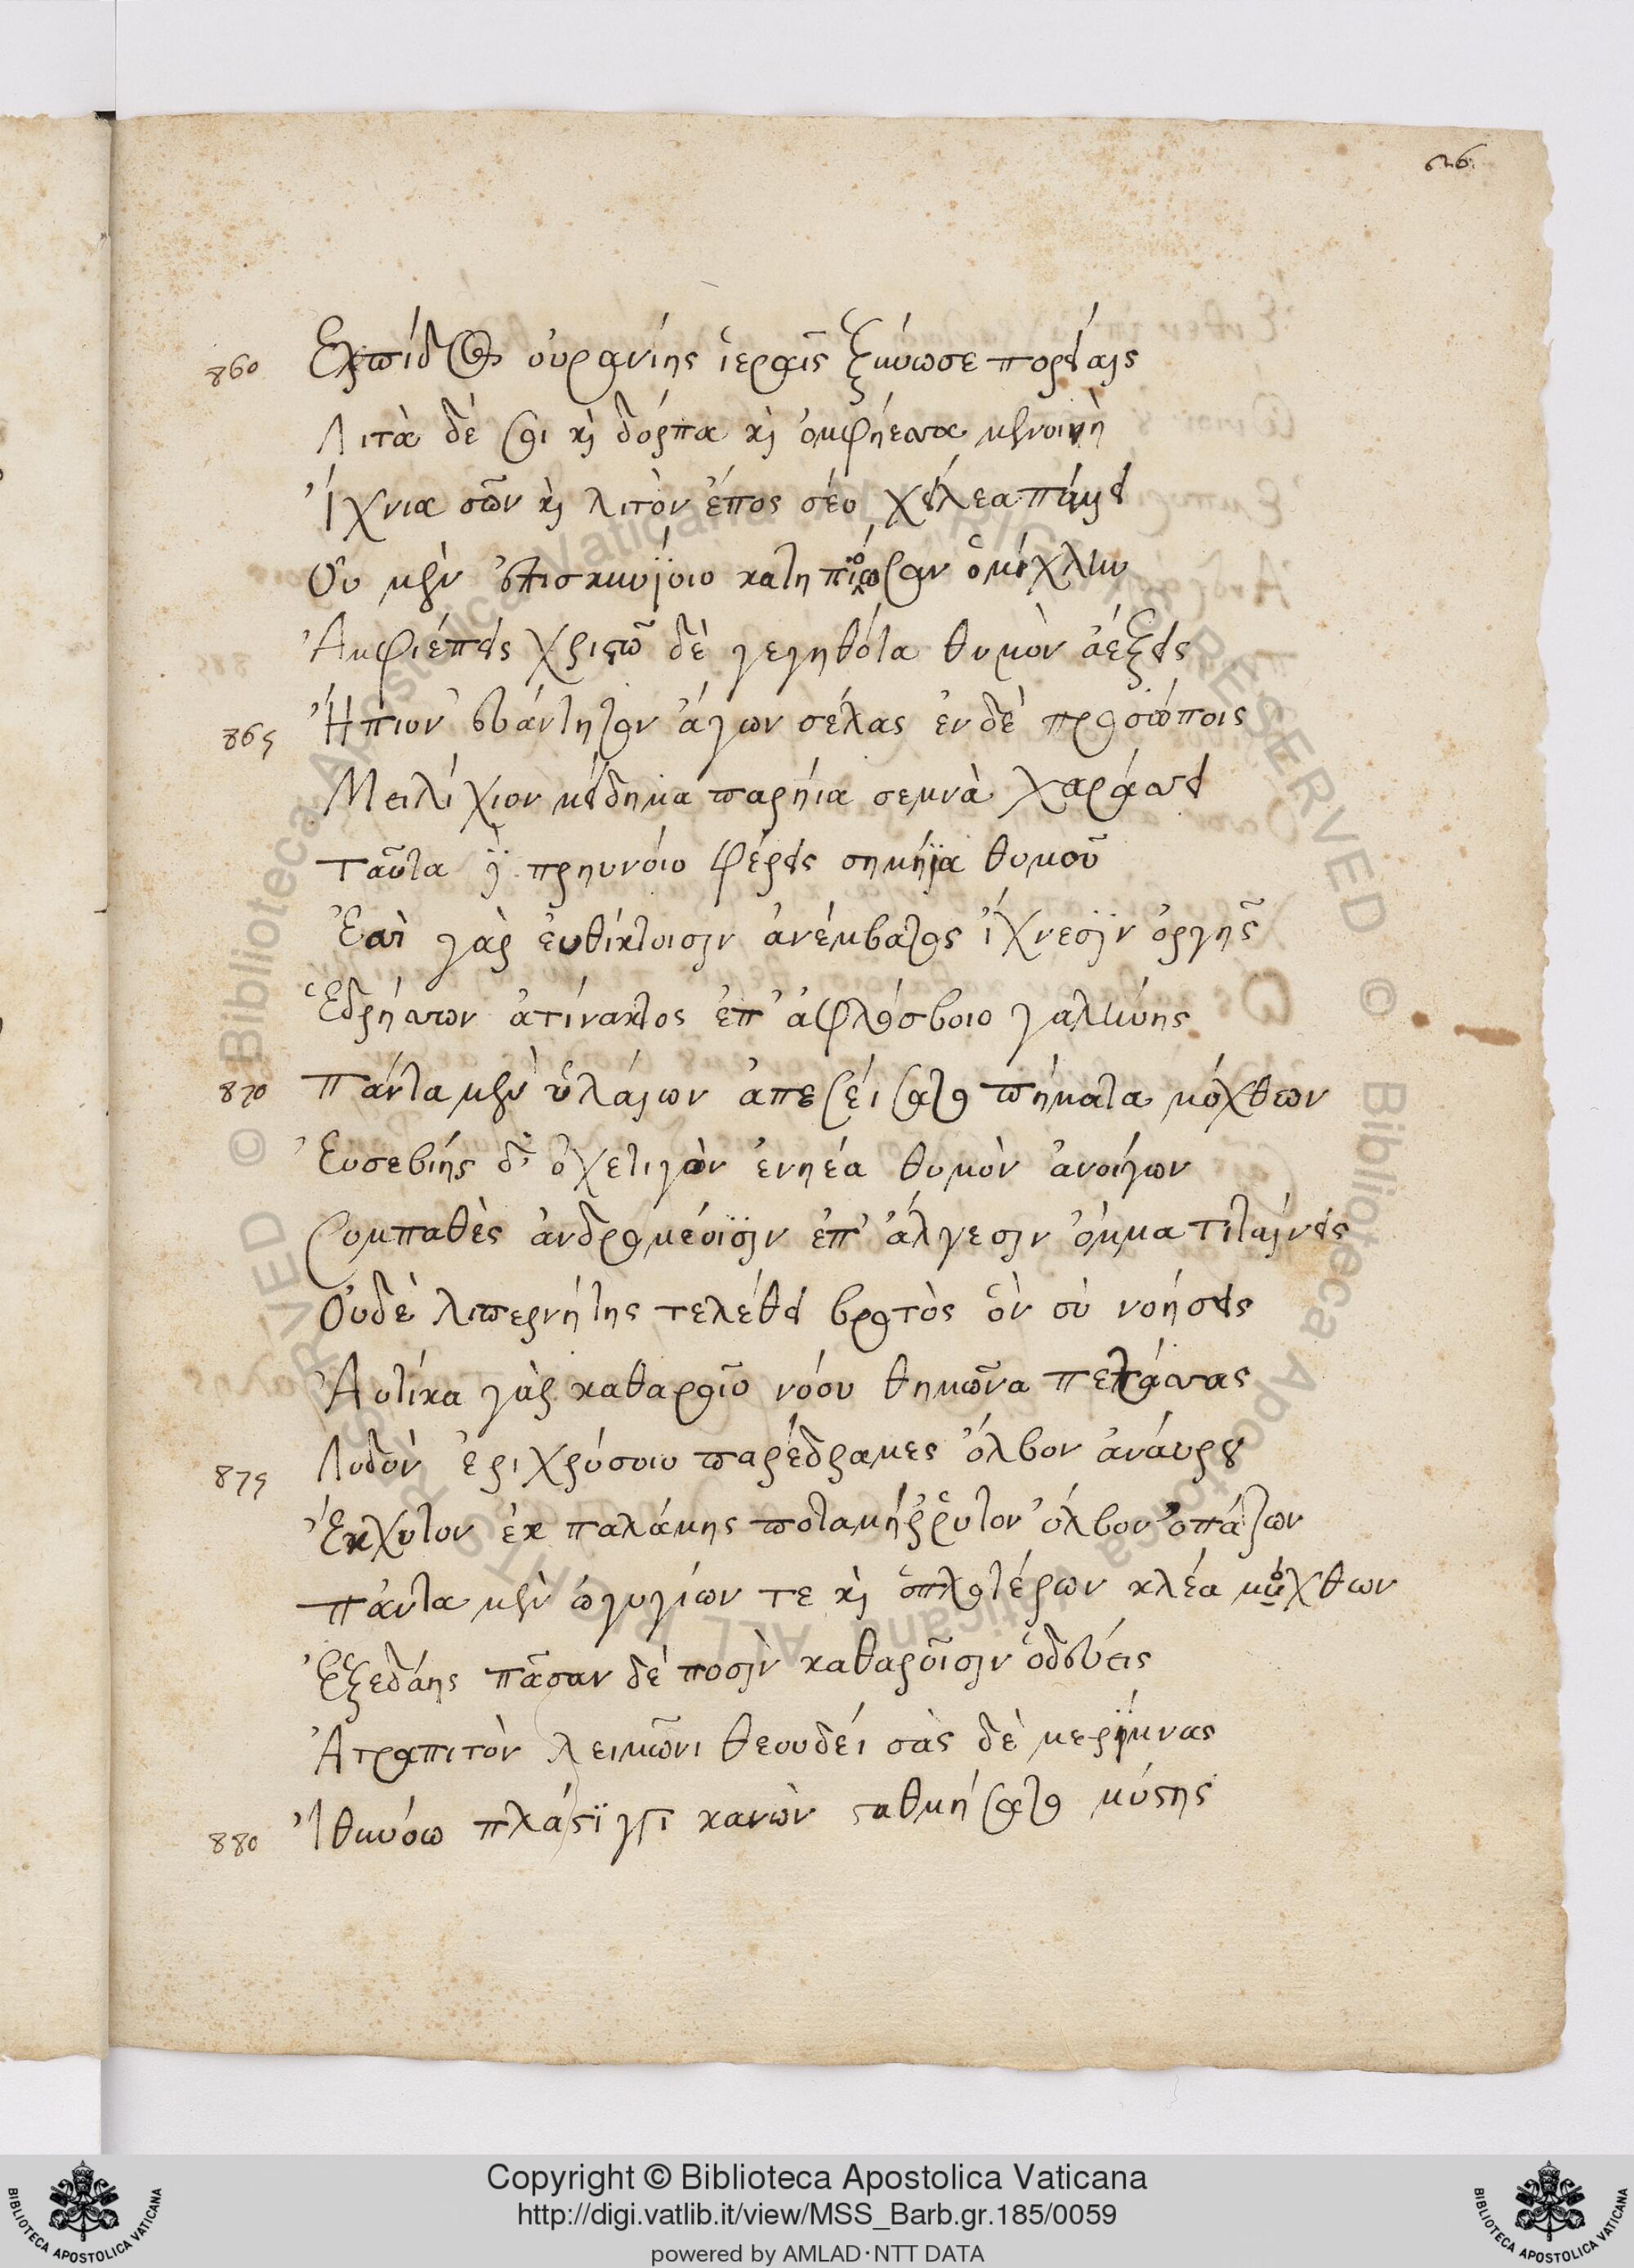 626.
860 Ἐλπίδος οὐρανίης ἱεραῖς ξήνωσε πορείαις
Λιτὰ δέ σοι καὶ δόρπα καὶ ὀμφήεντα μενοινὴ
Ἴχνια σῶν καὶ λιτὸν ἔπος σέο χείλεα πάμει
Οὐ μὲν ἐπισκυνίοιο κατηπιόωσαν ὁμίχλην
Ἀμφιέπεις χριστῶ δὲ γεγηθότα θυμὸν ἀέξεις
865 Ἤπιον εὐάντητον ἄγων σέλας ἐν δὲ προσώποις
Μειλίχιον μείδημα παρήϊα σεμνὰ χαράσσει
Ταῦτα πρηυνόιο φέρεις σημήϊα θυμοῦ
Ἐσσὶ γὰρ εὐθίκτοισιν ἀνέμβατος ἴχνεσιν ὀργῆς
Ἑδρήσσων ἀτίνακτος ἐπ' ἀφλοίσβοιο γαλήνης
870 Πάντα μὲν ὑλάίων ἀπεσείσατο πήματα μόχθων
Εὐσεβίης δ' ὀχετηγὸν ἐνηέα θυμὸν ἀνοίγων
Συμπαθὲς ἀνδρομέοισιν ἐπ' ἄλγεσιν ὄμμα τιταίνεις
Οὐδὲ λιπερνήτης τελέθει βροτὸς ὃν σὺ νοήσεις
Αὐτίκα γὰρ καθαροῖο νόου θημῶνα πετάσσας
875 Λυδὸν ἐριχρύσοιο παρέδραμες ὄλβον ἀναύρου
Ἔκχυτον ἐκ παλάμης ποταμήῤῥυτον ὄλβον ὀπάζων
Πάντα μὲν ὠγυγίων τε καὶ ὁπλοτέρων κλέα μόχθων
Ἐξεδάης πᾶσαν δὲ ποσὶν καθαροῖσιν ὁδεύεις
Ἀτραπιτὸν λειμῶνι θεουδέι σὰς δὲ μερίμνας
880 Ἰθυνόω πλάστιγγι κανὼν σταθμήσατο μύστης
Copyright © Biblioteca Apostolica Vaticana
http://digi.vatlib.it/view/MSS_Barb.gr.185/0059
powered by AMLAD·NTT DATA